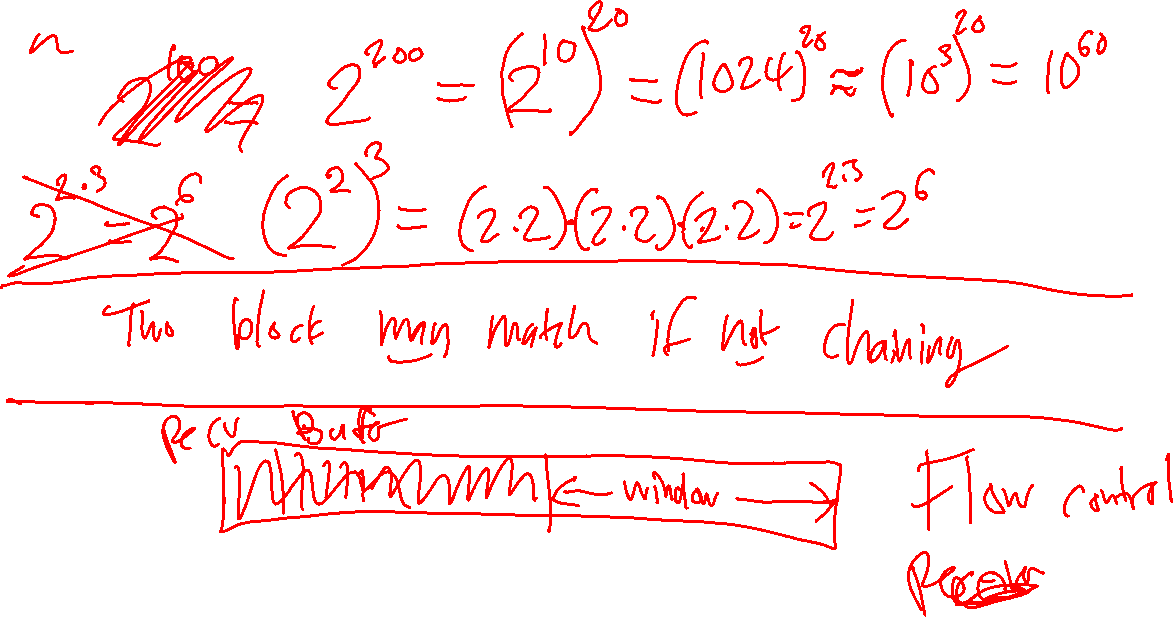 n
2^200 = (2^10)^20 = (1024)^20 ≈ (10^3)^20 = 10^60
2^2·3 = 2^6 (2^2)^3 = (2·2)·(2·2)·(2·2) = 2^2·3 = 2^6
Two block may match if not chaining
Recv Buffer
window Flow control